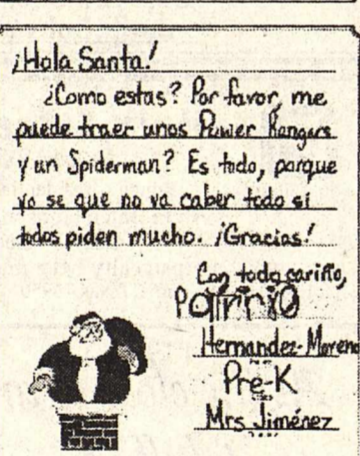 ¡Hola Santa!
¿Como estas? Por favor, me
puede traer unos Power Rangers
y un Spiderman? Es todo, porque
yo se que no va caber todo si
todos piden mucho. ¡Gracias!
Con todo cariño,
Patricio
Hernandez-Moreno
Pre-K
Mrs Jiménez